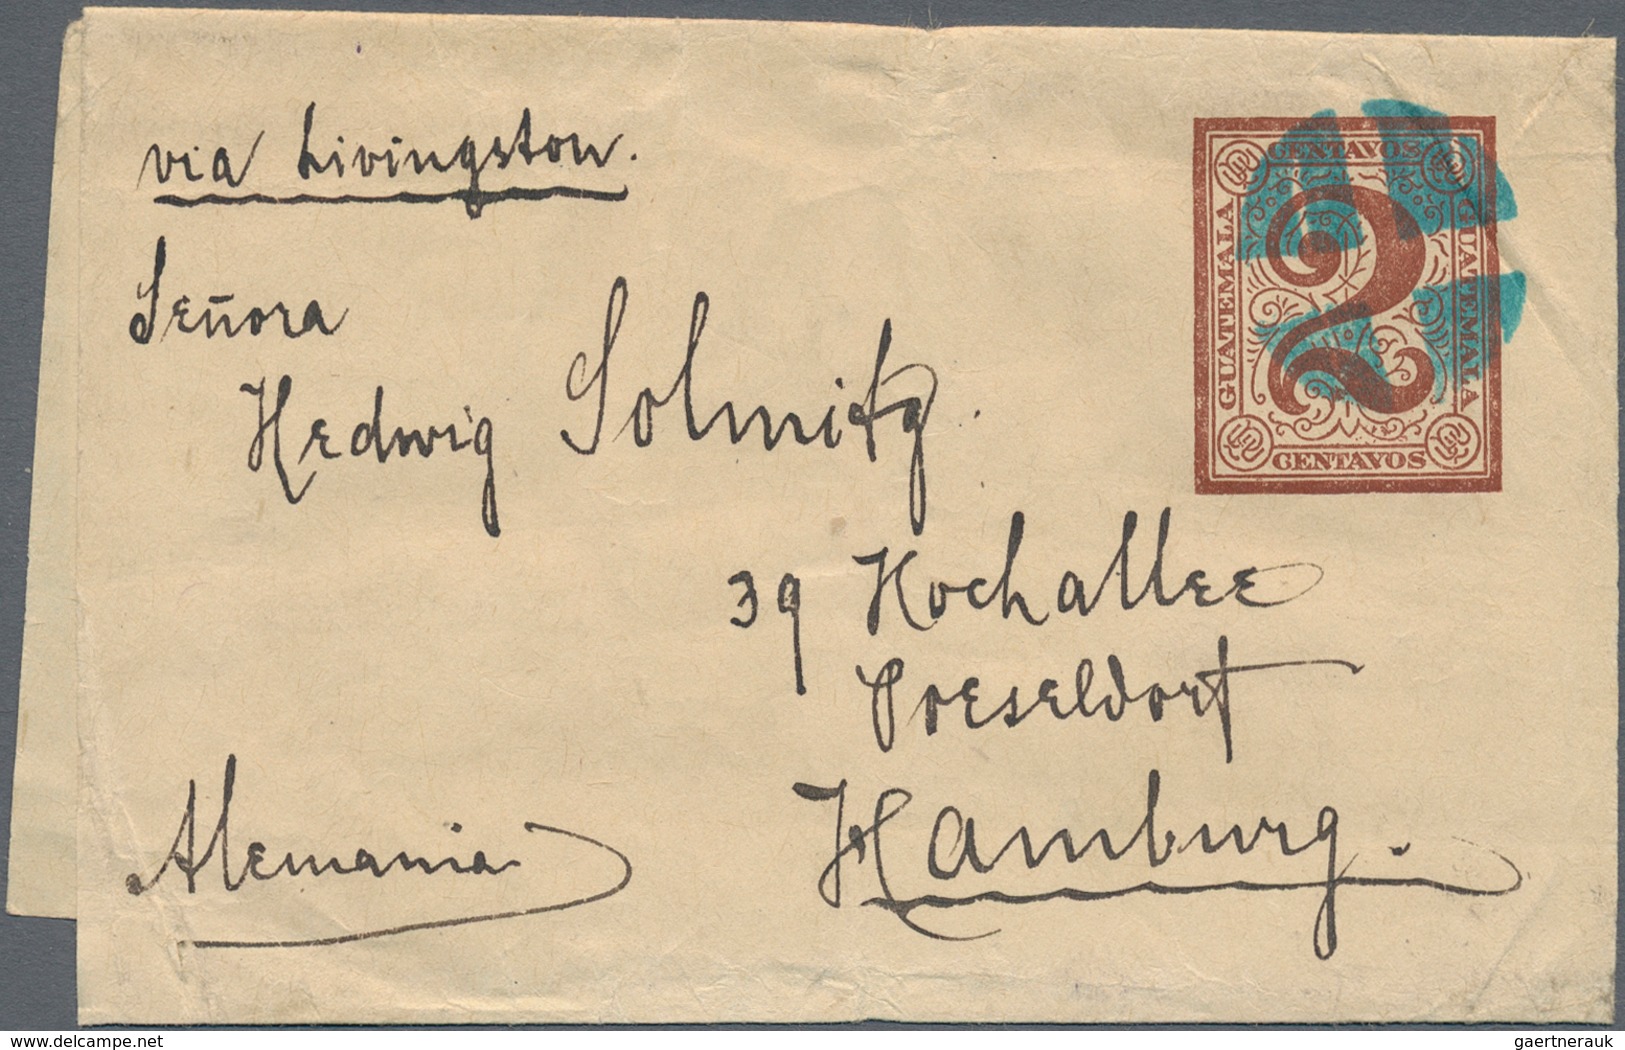 via Livingston.
Señora
Hedwig Solmitz.
39 Hochallee
Poeseldorf
Hamburg.
Alemania
CENTAVOS
GUATEMALA
GUATEMALA
2
CENTAVOS
gaertnerauk